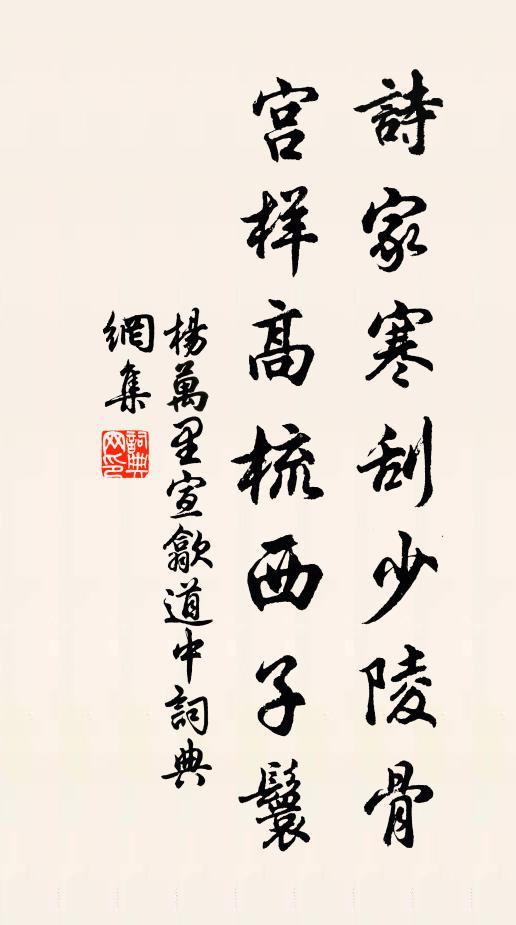 詩家寒刮少陵骨
宫樣髙梳西子鬟
楊萬里宣歙道中詞典
網集
詞典网印